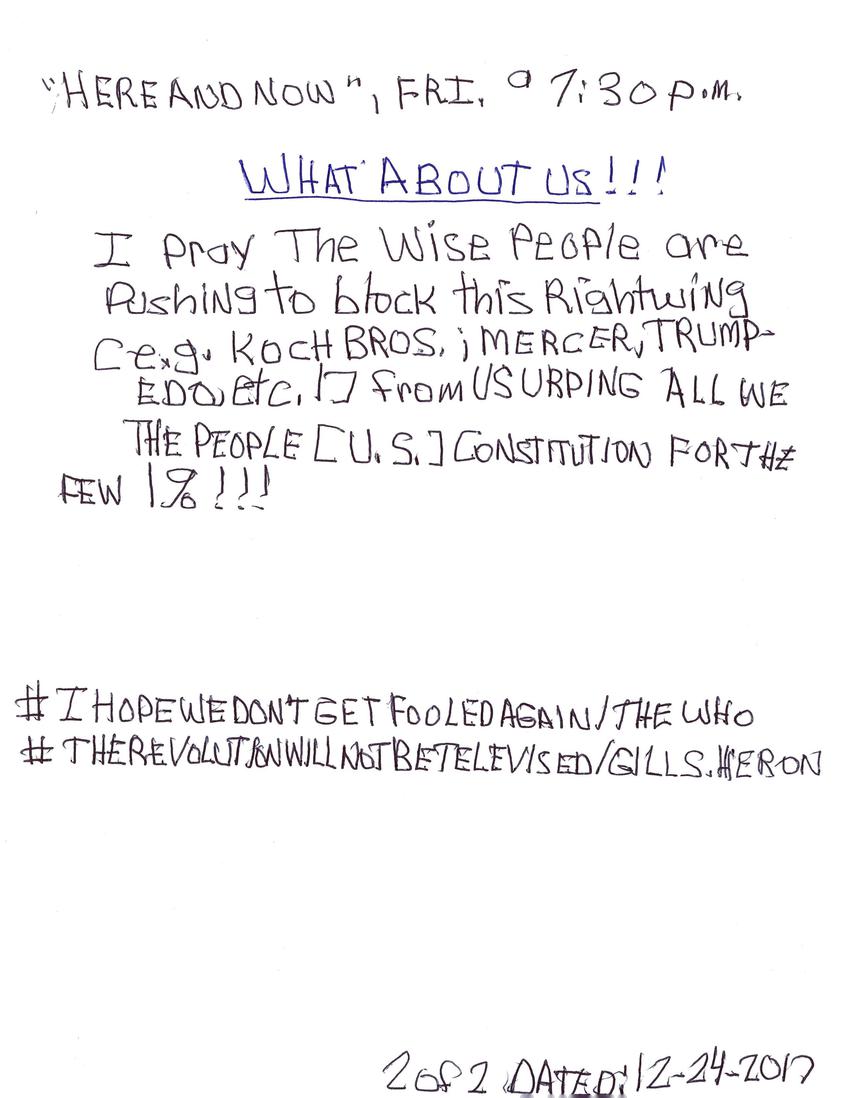 "HERE AND NOW", FRI. @ 7:30 p.m.
WHAT ABOUT US!!!
I pray The Wise People are
Pushing to block this Rightwing
[e.g. KOCH BROS.; MERCER, TRUMP-
EDO, Etc.!] from USURPING ALL WE
THE PEOPLE [U.S.] CONSTITUTION FOR THE
FEW 1%!!!
#IHOPEWEDON'TGETFOOLEDAGAIN/THE WHO
#THEREVOLUTIONWILLNOTBETELEVISED/GILLS.HERON
2 of 2 DATED: 12-24-2017